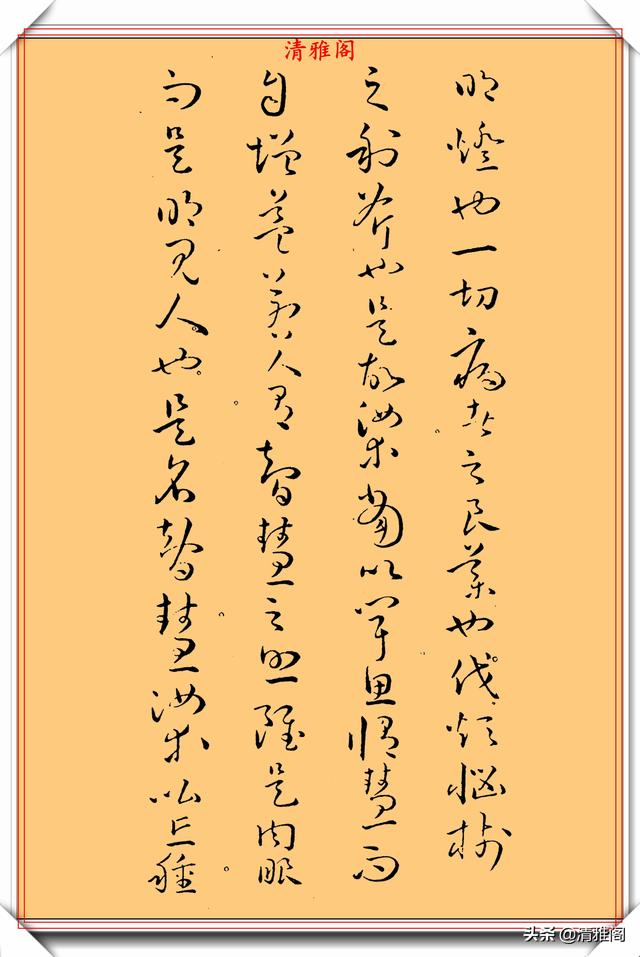 清雅阁
明燈也一切病者之良藥也伐煩惱樹
之利斧也是故汝等當以聞思修慧而
自增益若人有智慧之照雖是肉眼
而是明見人也是名智慧汝等比丘種
头条 @清雅阁